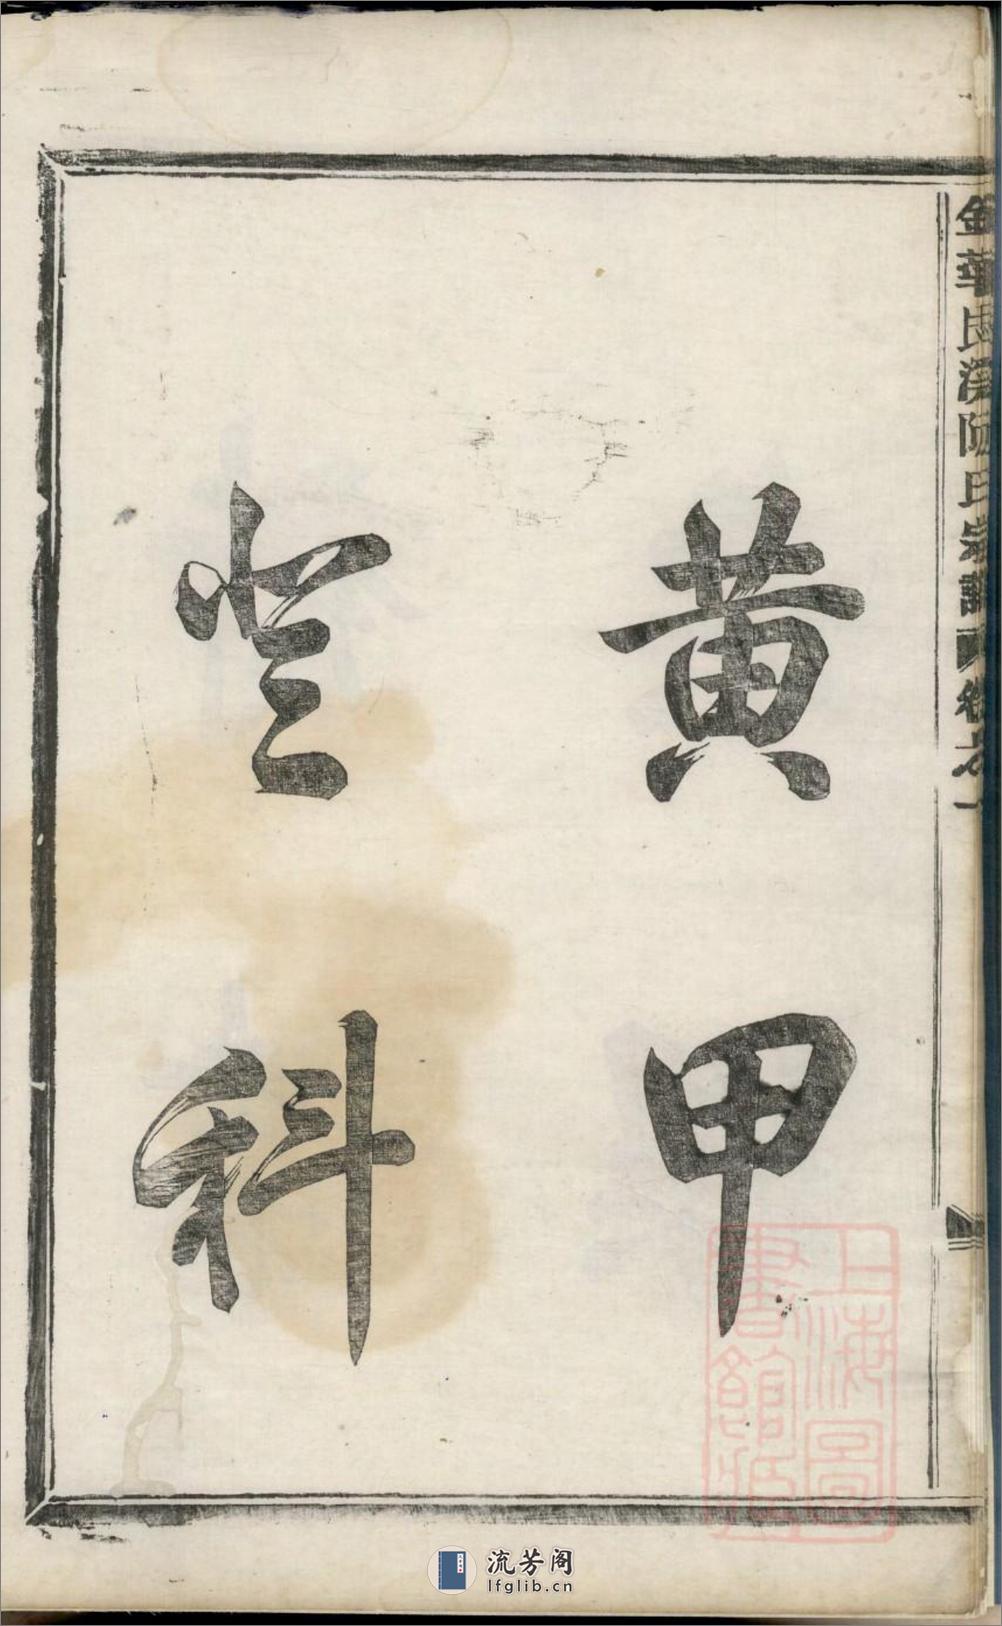 金華溪氏宗譜
黃甲
登科
上海圖
書館藏
流芳阁
lfglib.cn